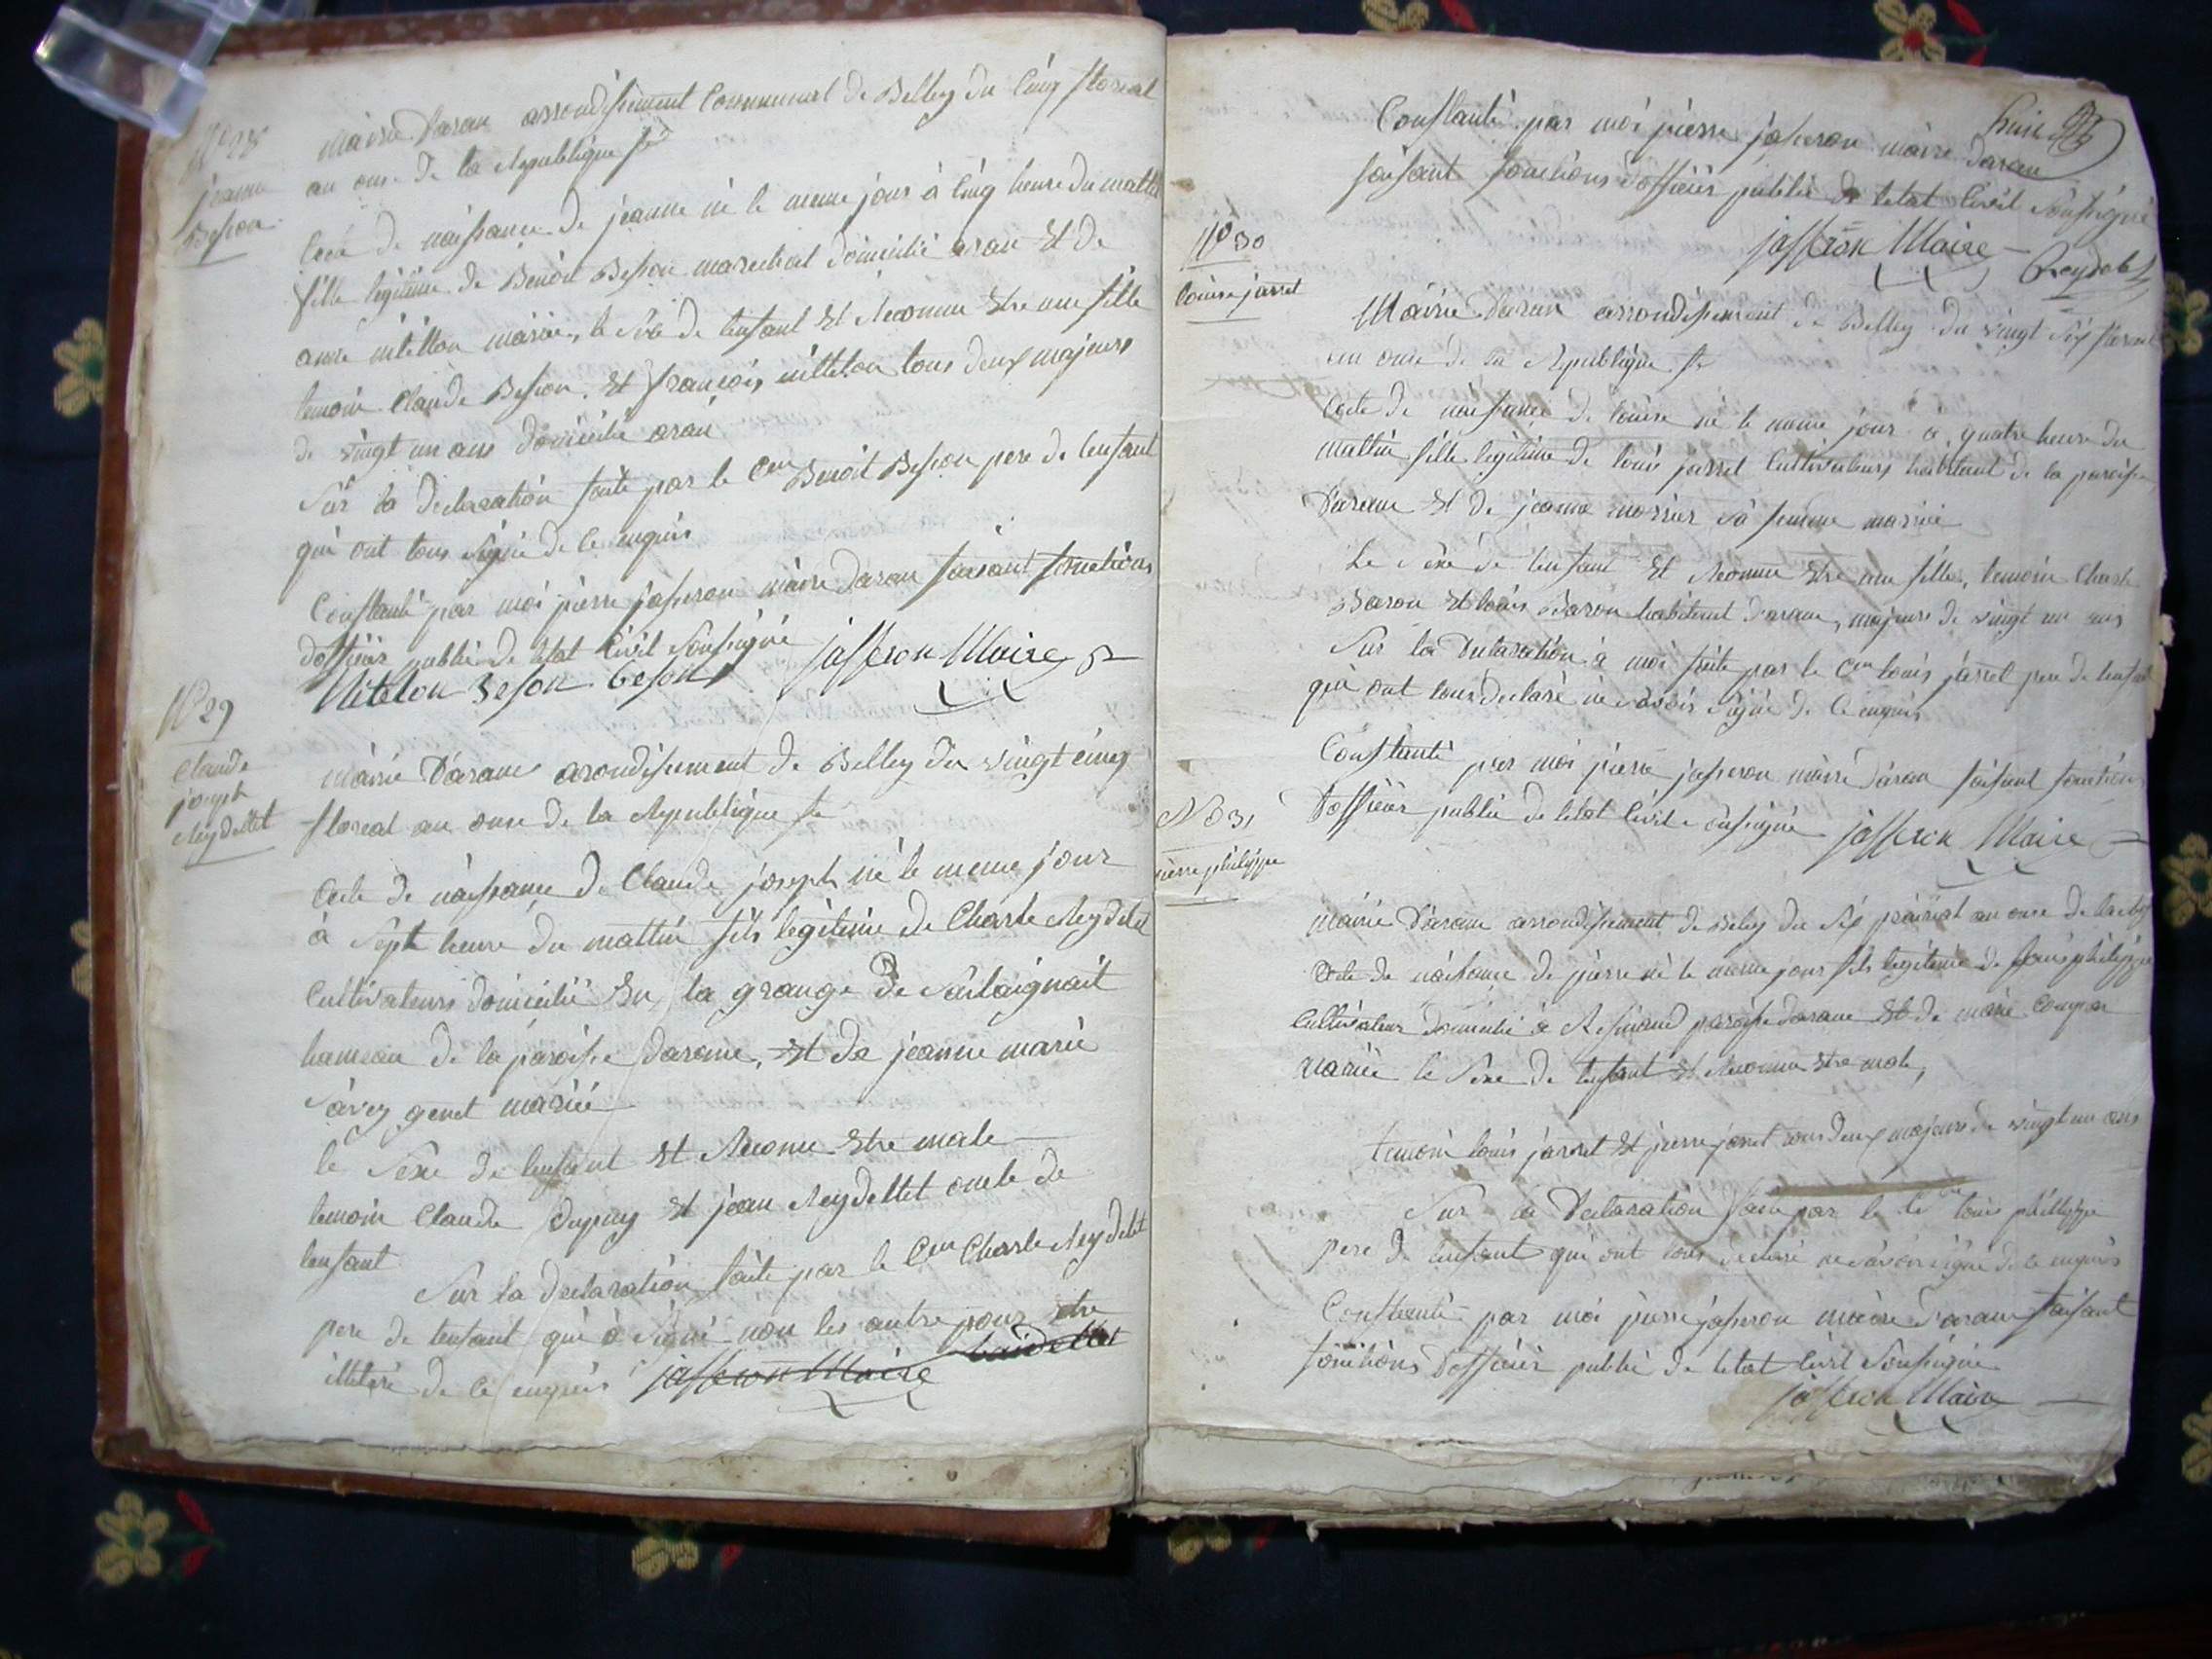 N° 28
jeanne
Besson
Mairie Daran arrondissement Communal de Belley du Cinq floreal
an onze de la Republique fse
acte de naissance de jeanne né le meme jour à Cinq heure du mattin
fille légitime de Benoit Besson marechal domicilié aran Et de
anne mitillon mariée, le sexe de lenfant Et Reconnu Etre une fille
temoin Claude Besson Et françois mittelon tous deux majeurs
de vingt un ans domicilié aran
Sur la declaration faite par le Cen Benoit Besson pere de lenfant
qui ont tous Signé de ce enquis
Constanté par moi pierre jasseron maire daran faisant fonctions
dofficier public de letat Civil Soussigné jasseron Maire
Mitelon Beson beson
N° 29
Claude
joseph
Reydellet
mairie Darane arondissement de Belley du vingt cinq
floreal an onze de la Republique fse
acte de naissance de Claude joseph né le meme jour
à Sept heure du mattin fils légitime de Charle Reydelet
Cultivateurs domicilié En la grange de
hameau de la paroisse darane, Et de jeanne marie
Savey genet mariée
le Sexe de lenfant Et Reconnu Etre male
temoin Claude Dupuy Et jean Reydellet oncle de
lenfant
Sur la declaration faite par le Cen Charle Reydelet
pere de lenfant qui à Signé non les autre pour etre
illiteré de ce enquis jasseron Maire
Constanté par moi pierre jasseron maire daran
faisant fonctions dofficier public de letat Civil Soussigné
jasseron Maire
Reydelet
N° 30
louise jarret
Mairie Daran arrondissement de Belley du vingt Six floreal
an onze de la Republique fse
acte de naissance de louise né le meme jour à quatre heure du
mattin fille legitime de louis jarret Cultivateurs habitant de la paroisse
Darane Et de jeanne morrier Sa femme mariée
Le Sexe de lenfant Et Reconnu Etre une fille, temoin Charle
Baron Et louis Baron habitent darane, majeurs de vingt un ans
Sur la Declaration à moi faite par le Cen louis jarret pere de lenfant
qui ont tous declaré ne Savoir Signé de Ce enquis
Constanté par moi pierre jasseron maire daran faisant fonctions
Dofficier public de letat Civil Soussigné jasseron Maire
N° 31
pierre philippe
mairie Darane arrondissement de Beley du Six prairial an onze de la Rep
acte de naissance de pierre né le meme jour fils legitime de philippe
Cultivateur domicilié à Resinand paroisse darane Et de marie
mariée le Sexe de lenfant Et Reconnu Etre male,
temoin louis jarret Et pierre jarret tous deux majeurs de vingt un ans
Sur la Declaration faite par le Cen louis phillippe
pere de lenfant qui ont tous declaré ne savoir signé de ce enquis
Constanté par moi pierre jasseron maire darane faisant
fonctions Dofficier public de letat Civil Soussigné
jasseron Maire